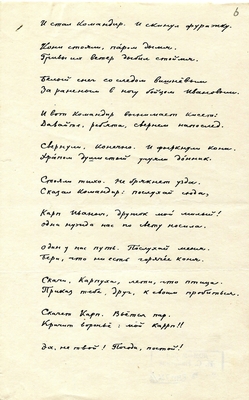 6
И стал Командир. И скинул фуражку.
Кони стояли, паром дымя.
Гривы их ветер дыбил стоймя.
Белый снег со следом вишнёвым
За раненым в ногу бойцом Ивановым.
И вот Командир вынимает кисет:
Давайте, ребята, свернём напослед.
Свернули. Конечно. И фыркнули кони.
душистый учуяли
Стояли тихо. Не брякнет узда.
Сказал Командир: послухай сюда,
Карп Иваныч, дружок мой милый!
одна нужда нас по свету носила.
один у нас путь. Послухай меня.
Бери, что ни есть горячее коня.
Скачи, Карпуха, лети, что птица.
Приказ тебе, друг, к своим пробиться.
Скачет Карп. Вьётся пар.
Кричит вороньё: мой каррп!!
Эх, не твой! Погоди, постой!